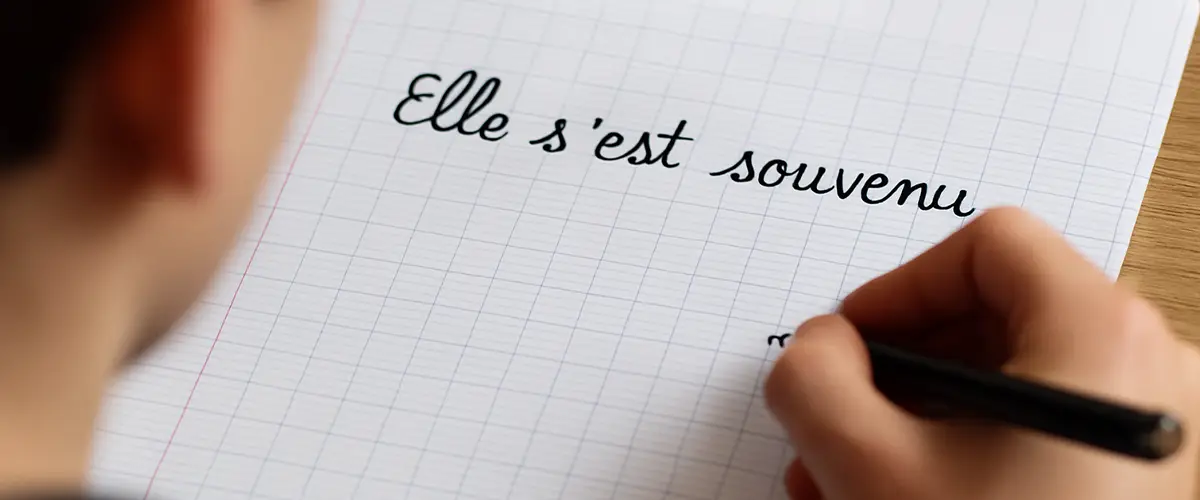 Elle s'est souvenu